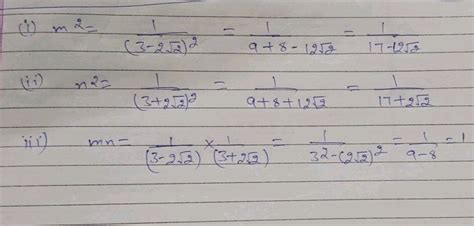 (i) m²= 1/(3-2√2)² = 1/(9+8-12√2) = 1/(17-12√2)
(ii) n²= 1/(3+2√2)² = 1/(9+8+12√2) = 1/(17+2√2)
iii) mn= 1/(3-2√2) × 1/(3+2√2) = 1/(3²-(2√2)²) = 1/(9-8) = 1